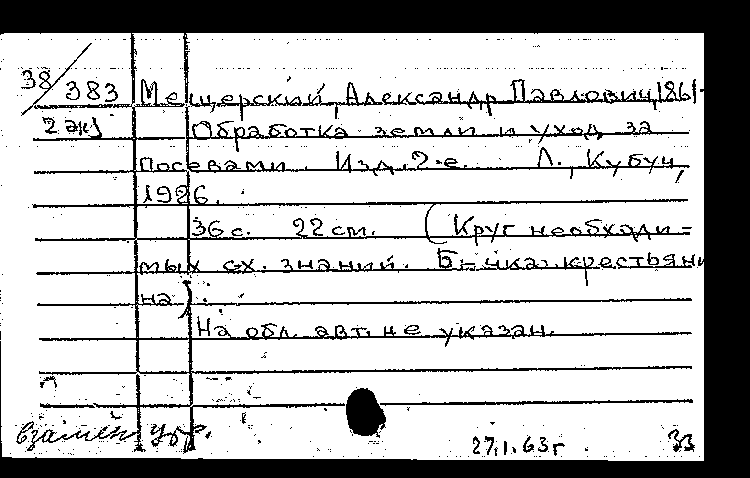 38/383 Мещерский, Александр Павлович, 1861-
2 экз Обработка земли и уход за
посевами. Изд. 2-е. Л., Кубуч,
1926.
36 с. 22 см. (Круг необходи=
мых сх. знаний. Б-чка крестьяни
на).
На обл. авт. не указан.
взамен утр.
27.1.63 г